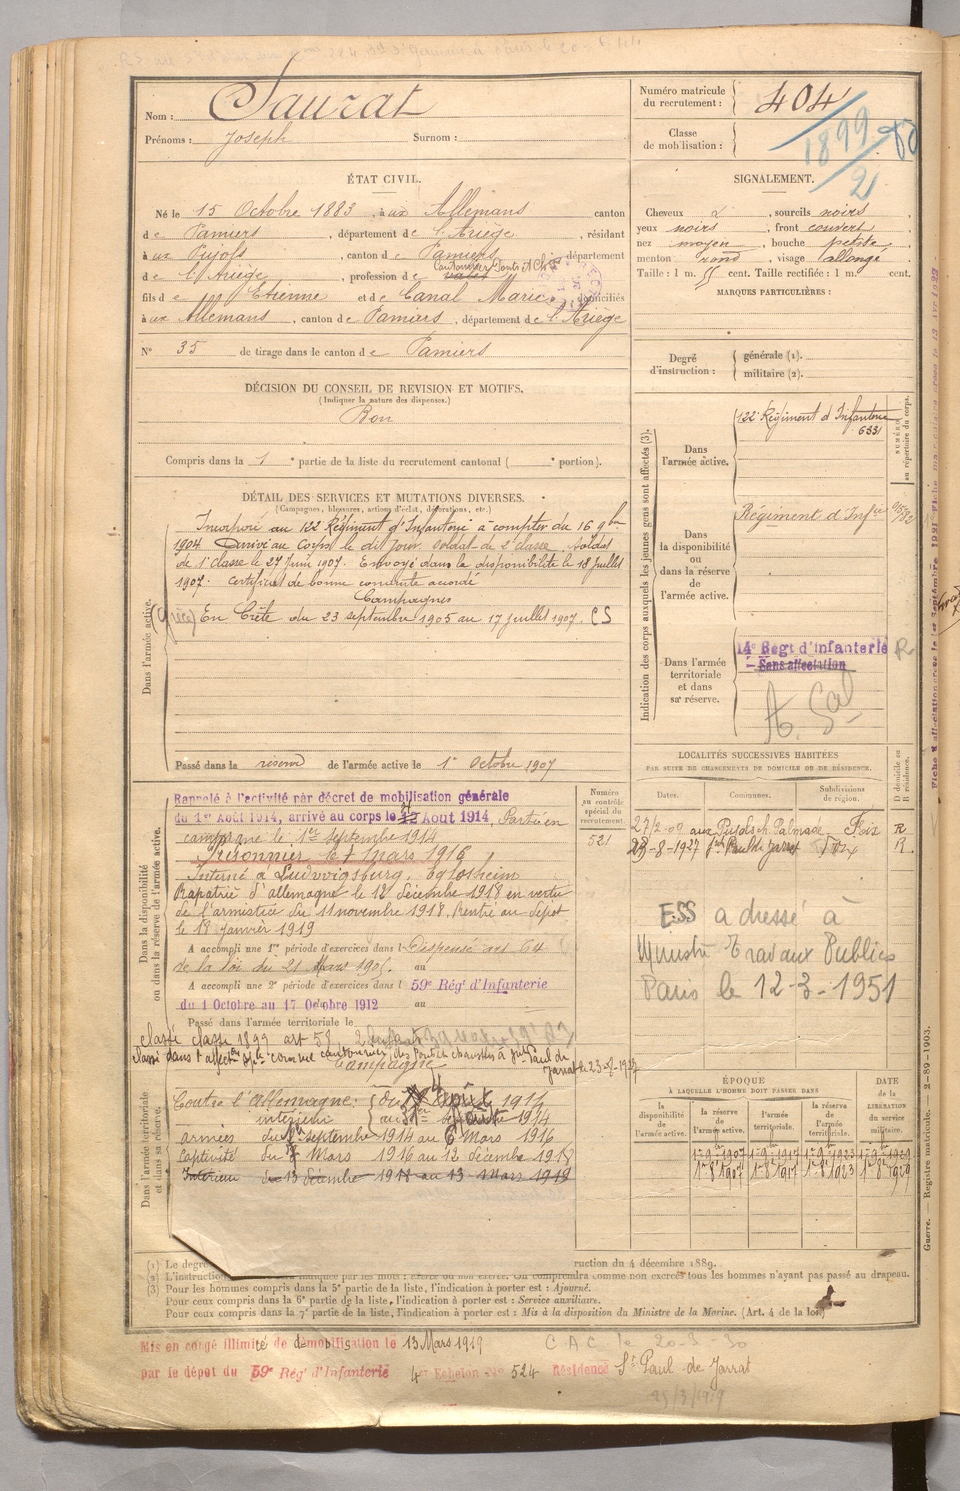 Nom : Saurat
Prénoms : Joseph Surnom :
Numéro matricule du recrutement : 404
Classe de mobilisation : 1899/2
ÉTAT CIVIL.
Né le 15 Octobre 1883, à aux Allemans canton
de Pamiers, département de l'Ariège, résidant
à aux Pujols, canton de Pamiers département
de l'Ariège, profession de Cantonnier Ponts et Ch
fils de Etienne et de Canal Marie, domiciliés
à aux Allemans, canton de Pamiers, département de l'Ariège
N° 35 de tirage dans le canton de Pamiers
SIGNALEMENT.
Cheveux d , sourcils noirs,
yeux noirs, front couvert,
nez moyen, bouche petite,
menton rond, visage allongé
Taille : 1 m. 55 cent. Taille rectifiée : 1 m. cent.
MARQUES PARTICULIÈRES :
Degré d'instruction : générale (1).
militaire (2).
DÉCISION DU CONSEIL DE REVISION ET MOTIFS.
(Indiquer la nature des dispenses.)
Bon
Compris dans la 1e partie de la liste du recrutement cantonal ( e portion).
DÉTAIL DES SERVICES ET MUTATIONS DIVERSES.
(Campagnes, blessures, actions d'éclat, décorations, etc.)
Dans l'armée active.
Incorporé au 122 Régiment d'Infanterie à compter du 16 9bre
1904 Arrivé au Corps le dit jour soldat de 2e classe. Soldat
de 1e classe le 27 Juin 1907. Envoyé dans la disponibilité le 18 Juillet
1907. Certificat de bonne conduite accordé
Campagnes
(Grèce) En Crète du 23 septembre 1905 au 17 juillet 1907. CS
Passé dans la réserve de l'armée active le 1er Octobre 1907
Indication des corps auxquels les jeunes gens sont affectés (3).
NUMÉRO au répertoire du corps.
Dans l'armée active.
122e Régiment d'Infanterie
6331
Dans la disponibilité ou dans la réserve de l'armée active.
Régiment d'Infie
Dans l'armée territoriale et dans sa réserve.
14e Regt d'Infanterie R
Sans affectation
LOCALITÉS SUCCESSIVES HABITÉES
PAR SUITE DE CHANGEMENTS DE DOMICILE OU DE RÉSIDENCE.
D domicile ou R résidence.
Dates. Communes. Subdivisions de région.
27/2-09 aux Pujols Foix R
23-8-1927 St Paul de Jarrat Foix R
ESS adressé à
Ministre Travaux Publics
Paris le 12-3-1951
Dans la disponibilité ou dans la réserve de l'armée active.
Numéro au contrôle spécial du recrutement.
521
Rappelé à l'activité par décret de mobilisation générale
du 1er Août 1914, arrivé au corps le 12 Août 1914, Parti en
campagne le 1er septembre 1914
Prisonnier le 7 mars 1916
Interné à Ludwigsburg, Eglosheim
Rapatrié d'allemagne le 12 décembre 1918 en vertu
de l'armistice du 11 novembre 1918, rentré au dépôt
le 18 janvier 1919
A accompli une 1re période d'exercices dans l Dispensé art 64
de la loi du 21 Mars 1905. au
A accompli une 2e période d'exercices dans l 59e Rég' d'Infanterie
du 1 Octobre au 17 Octobre 1912 au
Passé dans l'armée territoriale le
classé classe 1899 art 58
Classé dans l'affecton sple comme cantonnier des Ponts et chaussées à St Paul de
Jarrat le 23-8-1927
Campagne
Dans l'armée territoriale et dans sa réserve.
Contre l'Allemagne : du Août 1914
intérieur au 31 Août 1914
armées du 1er septembre 1914 au 6 Mars 1916
Captivité du 7 Mars 1916 au 12 décembre 1918
Intérieur du 13 décembre 1918 au 13 Mars 1919
ÉPOQUE
À LAQUELLE L'HOMME DOIT PASSER DANS
DATE DE LA LIBÉRATION DU SERVICE militaire.
la disponibilité de l'armée active. la réserve de l'armée active. l'armée territoriale. la réserve de l'armée territoriale.
1er-9-1907 1er-9-1917 1er-9-1923 1er-9-1929
1er-8-1907 1er-8-1917 1er-8-1923 1er-8-1929
(1) Le degré ruction du 4 décembre 1889.
(2) L'instruction marquée par les mots : exercé ou non exercé. On comprendra comme non exercés tous les hommes n'ayant pas passé au drapeau.
(3) Pour les hommes compris dans la 5e partie de la liste, l'indication à porter est : Ajourné.
Pour ceux compris dans la 6e partie de la liste, l'indication à porter est : Service auxiliaire.
Pour ceux compris dans la 7e partie de la liste, l'indication à porter est : Mis à la disposition du Ministre de la Marine. (Art. 4 de la loi)
Guerre. — Registre matricule. — 2-89-1903.
Mis en congé illimité de démobilisation le 13 Mars 1919 C A C le 20-3-30
par le dépôt du 59e Rég' d'Infanterie 4e Echelon N° 524 Résidence St Paul de Jarrat
25/3/1919